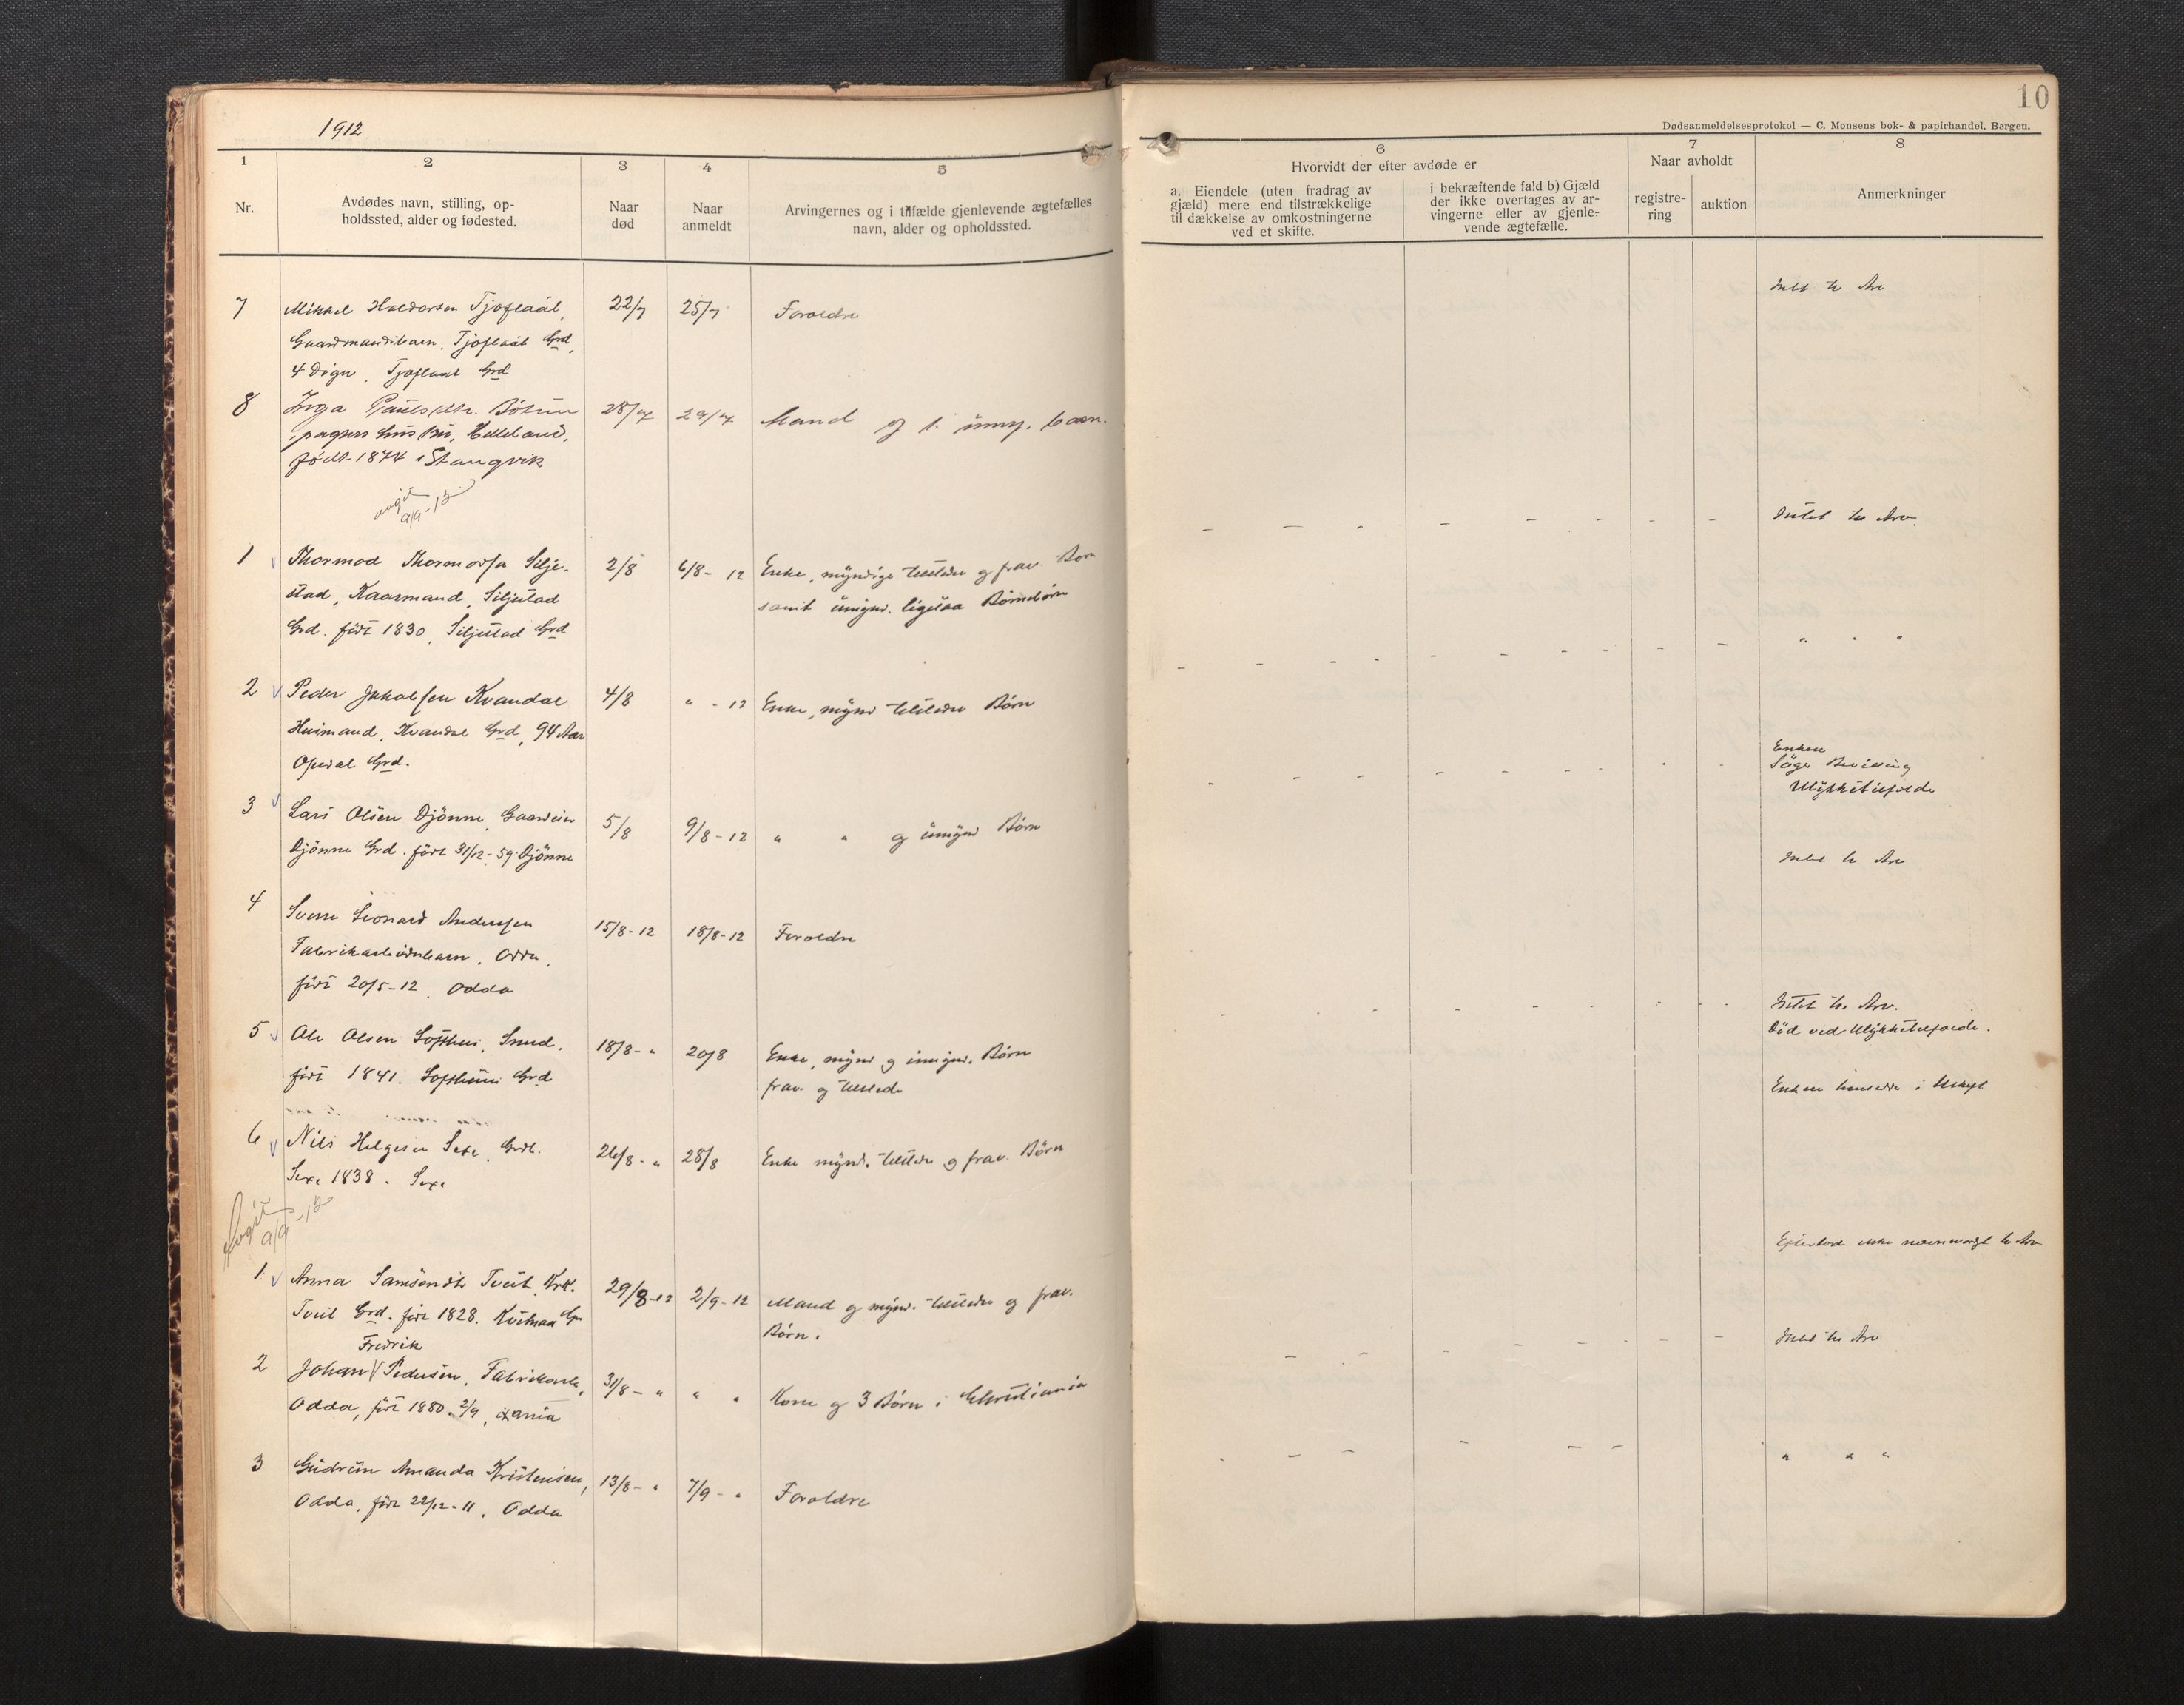 1912
10
Dødsanmeldelsesprotokol — C. Monsens bok- & papirhandel, Bergen.
1 2 3 4 5 6 7 8
Nr.
Avdødes navn, stilling, op-
holdssted, alder og fødested.
Naar
død
Naar
anmeldt
Arvingernes og i tilfælde gjenlevende ægtefælles
navn, alder og opholdssted.
Hvorvidt der efter avdøde er
a. Eiendele (uten fradrag av
gjæld) mere end tilstrækkelige
til dækkelse av omkostningerne
ved et skifte.
i bekræftende fald b) Gjæld
der ikke overtages av ar-
vingerne eller av gjenle-
vende ægtefælle.
Naar avholdt
registre-
ring
auktion
Anmerkninger
7 Mikkel Haldorsen Tjoflaat, 22/7 25/7 Foroldre Intet te Arv
Gaardmandsbarn, Tjoflaat Grd,
4 Døgn, Tjoflaat Grd
8 Inga Paulsdtr. 28/7 29/7 Mand og 1 umy. barn.
Helleland,
født 1874 i Stangvik
9/9-12
- - - - - - - - Intet te Arv.
1 Thormod Thormodsa Silje- 2/8 6/8-12 Enke, myndige tilstede og frav Born
stad, Kaarmand, Siljestad samt umynd. ligesaa Børnebørn
Grd. født 1830, Siljestad Grd
- - - - - - - - - - " " "
2 Peder Jakobsen Kvandal 4/8 " - 12 Enke, mynd tilstede Børn
Huusmand, Kvandal Grd, 94 Aar
Opedal Grd.
Enken
Søger Bevilling
Ulykkestilfælde
3 Lars Olsen Djönne, Gaardeier 5/8 9/8-12 " " og umynd Børn
Djönne Grd. født 31/12-59 Djönne
Intet te Arv
4 Sverre Leonard Andersen 15/8-12 18/8-12 Foroldre
Fabrikarbeiderbarn, Odda,
født 20/5-12, Odda
Intet te Arv.
Död ved Ulykkestilfælde.
5 Ole Olsen Lofthus, Smed. 18/8-" 20/8 Enke, mynd og umynd. Børn
født 1841. Lofthus Grd frav. og tilstede
Enken hensidder i Uskift
6 Nils Helgesen Sexe, Grdb. 26/8-" 28/8 Enke mynd. tilstede og frav. Børn
Sexe 1838. Sexe
9/9-12
Efterlod ikke te Arv
1 Anna Samsonsdtr Tveit, Krk. 29/8-12 2/9-12 Mand og mynd. tilstede og frav.
Tveit Grd. født 1828. Børn.
Fredrik
2 Johan V Pedersen, Fabrikarb, 31/8-" " " Kone og 3 Børn i Christiania Intet te Arv
Odda, født 1880. 2/9, Xania
3 Gudrun Amanda Kristensen, 13/8-" 7/9-" Foroldre " " "
Odda, født 22/12-11, Odda